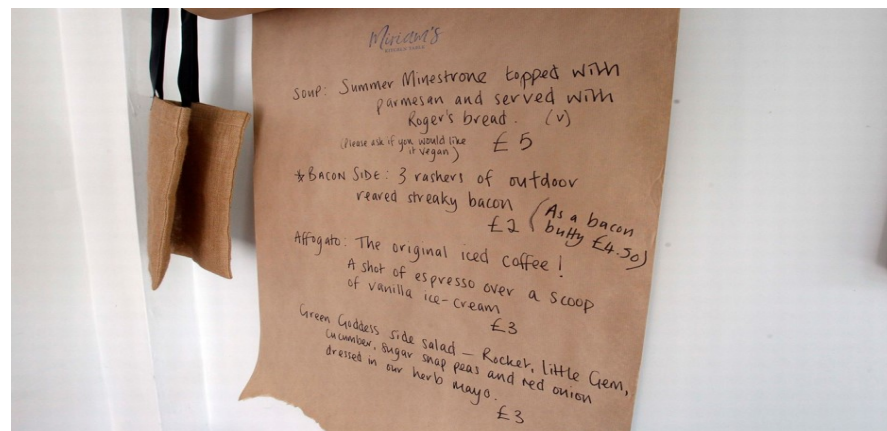 Miriam's
SOUP: Summer Minestrone topped with
parmesan and served with
Roger's bread. (V)
(Please ask if you would like
it vegan) £5
*BACON SIDE: 3 rashers of outdoor
reared streaky bacon
£2 (As a bacon
butty £4.50)
Affogato: The original iced coffee!
A shot of espresso over a scoop
of vanilla ice-cream
£3
Green Goddess side salad — Rocket, little Gem,
cucumber, sugar snap peas and red onion
dressed in our herb mayo.
£3